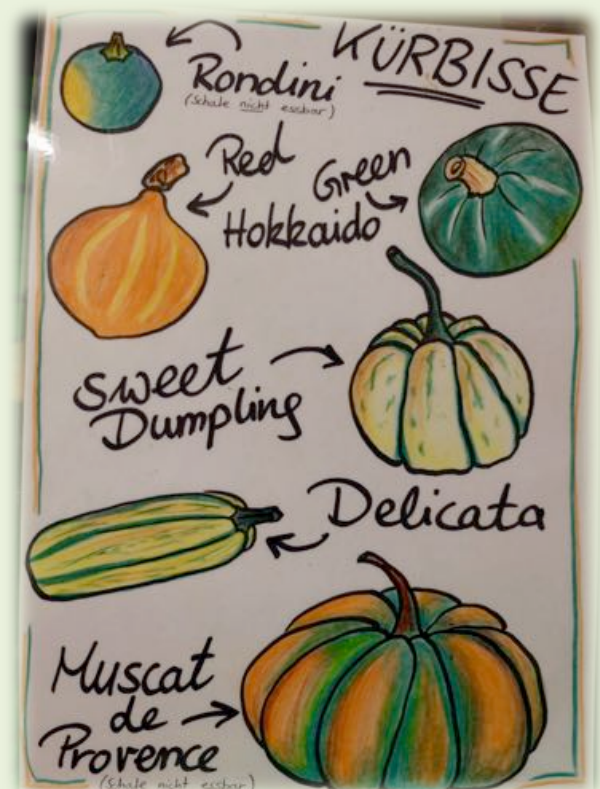 KÜRBISSE
Rondini
(Schale nicht essbar)
Red
Green
Hokkaido
Sweet
Dumpling
Delicata
Muscat
de
Provence
(Schale nicht essbar)